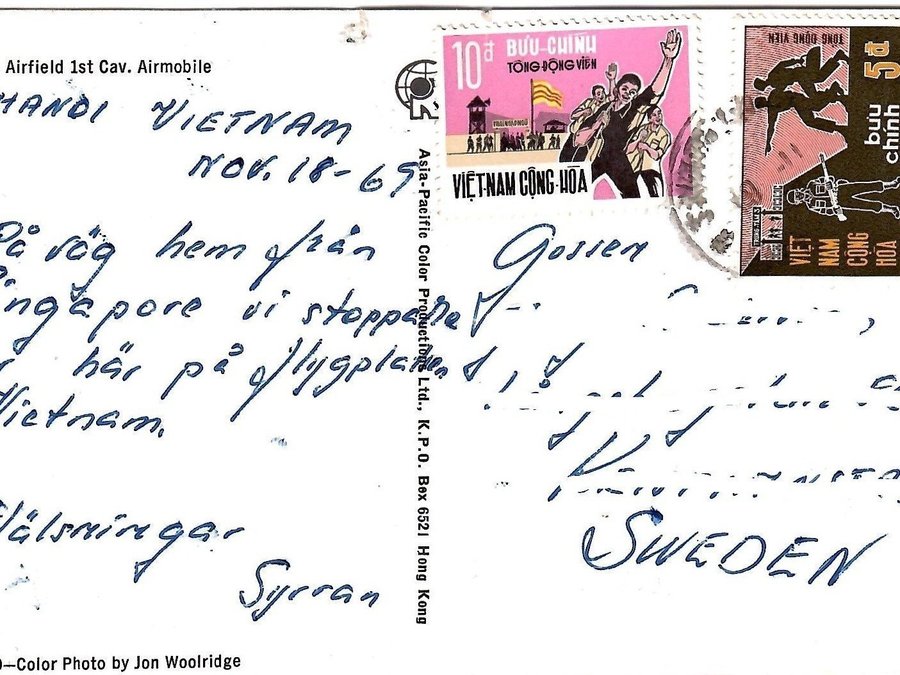 Airfield 1st Cav. Airmobile
HANOI VIETNAM
NOV. 18-69
På väg hem från
Singapore vi stoppade
här på flygplatsen
Vietnam.
Hälsningar
Syrran
—Color Photo by Jon Woolridge
Asia-Pacific Color Productions Ltd., K.P.O. Box 6521 Hong Kong
10đ BƯU-CHÍNH
TỔNG-ĐỘNG VIÊN
VIỆT-NAM CỘNG-HÒA
TỔNG ĐỘNG VIÊN
5đ
bưu chính
VIỆT
NAM
CỘNG
HÒA
Gossen
SWEDEN